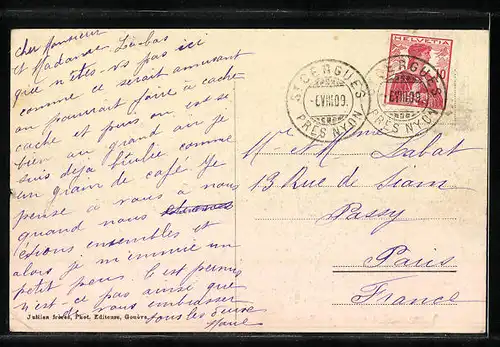 Cher Monsieur
et Madame Labat
que n'êtes-vs pas ici
comme ce serait amusant
on pourrait faire à cache
cache et puis on est si
bien au grand air je
suis déjà brulée comme
un grain de café. Je
pense à vous à nous
quand nous
étions ensembles et
alors je m'ennuie un
petit peu C'est permis
n'est-ce pas ainsi que
de vous embrasser
tous les deux
Jullien frères, Phot. Editeurs, Genève
HELVETIA
10
ST CERGUES
VIII 09
PRÈS NYON
ST CERGUES
VIII 09
PRÈS NYON
Mr et Mme Labat
13 Rue de Siam
Passy
Paris
France